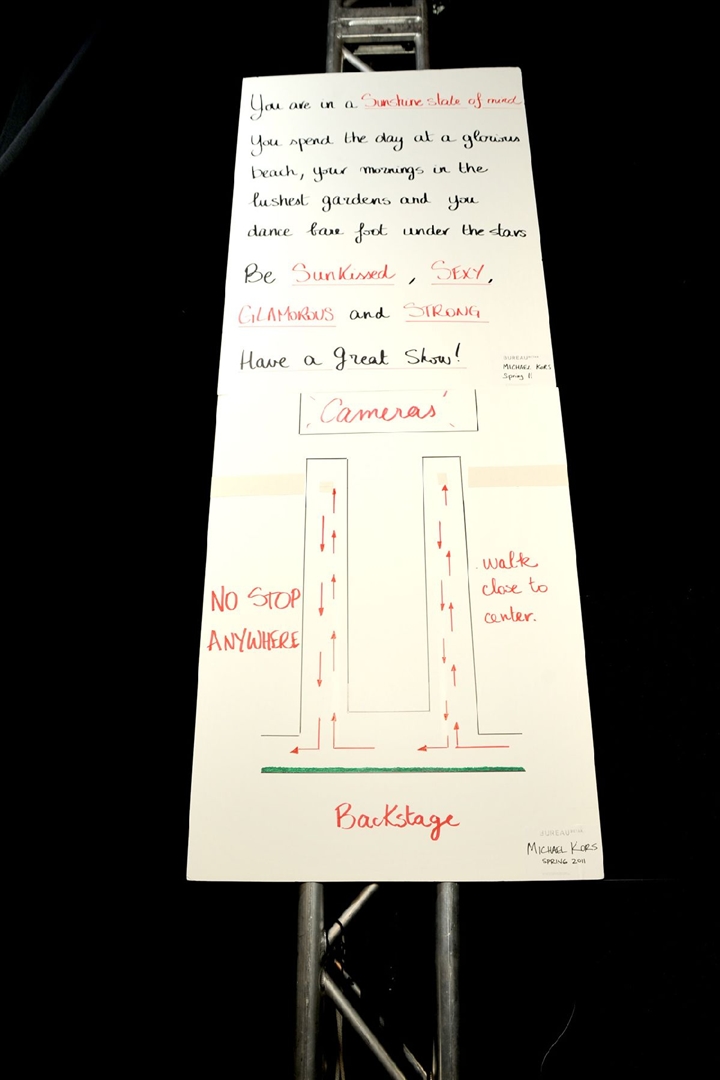 You are in a Sunshine state of mind
You spend the day at a glorious
beach, your mornings in the
lushest gardens and you
dance bare foot under the stars
Be SunKissed, SEXY,
GLAMOROUS and STRONG
Have a great Show!
BUREAU
MICHAEL KORS
Spring 11
Cameras
NO STOP
ANYWHERE
walk
close to
center.
Backstage
BUREAU
MICHAEL KORS
SPRING 2011